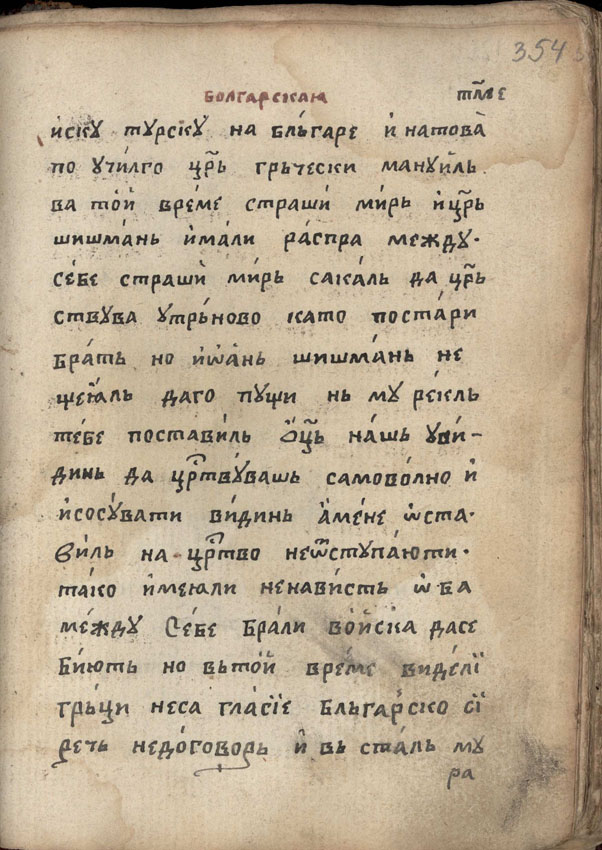 354
БОЛГАРСКАЯ
йску турску на бльгаре и натова̀
по учи́лго цр҃ь грьчески мануи́ль
ва то́й вре́ме страши́ ми́рь и цр҃ь
шишма́нь има́ли ра́спра между̀.
се́бе страши́ ми́рь сака́ль да цр҃ь
ствува утръ́ново като поста́ри
бра́ть но иѡа́нь шишма́нь не
щеꙗ́ль даго пу́щи нь му ре́кль
те́бе поста́виль ѻц҃ь на́шь уви́-
динь да црⷭ҇тву́вашь самово́лно и
исосу́вати ви́динь а́мене ѡста́-
виль на црⷭ҇тво неѿступа́юти.
та́ко имеꙗ́ли нена́висть ѡ҆ба
ме́жду се́бе бра́ли во́йска дасе
би́ють но вьто́й вре́ме виде́лїи
гръ́ци неса гла́сїе бльга́рско сїи
речь недо́говорь и вь ста́ль му
ра